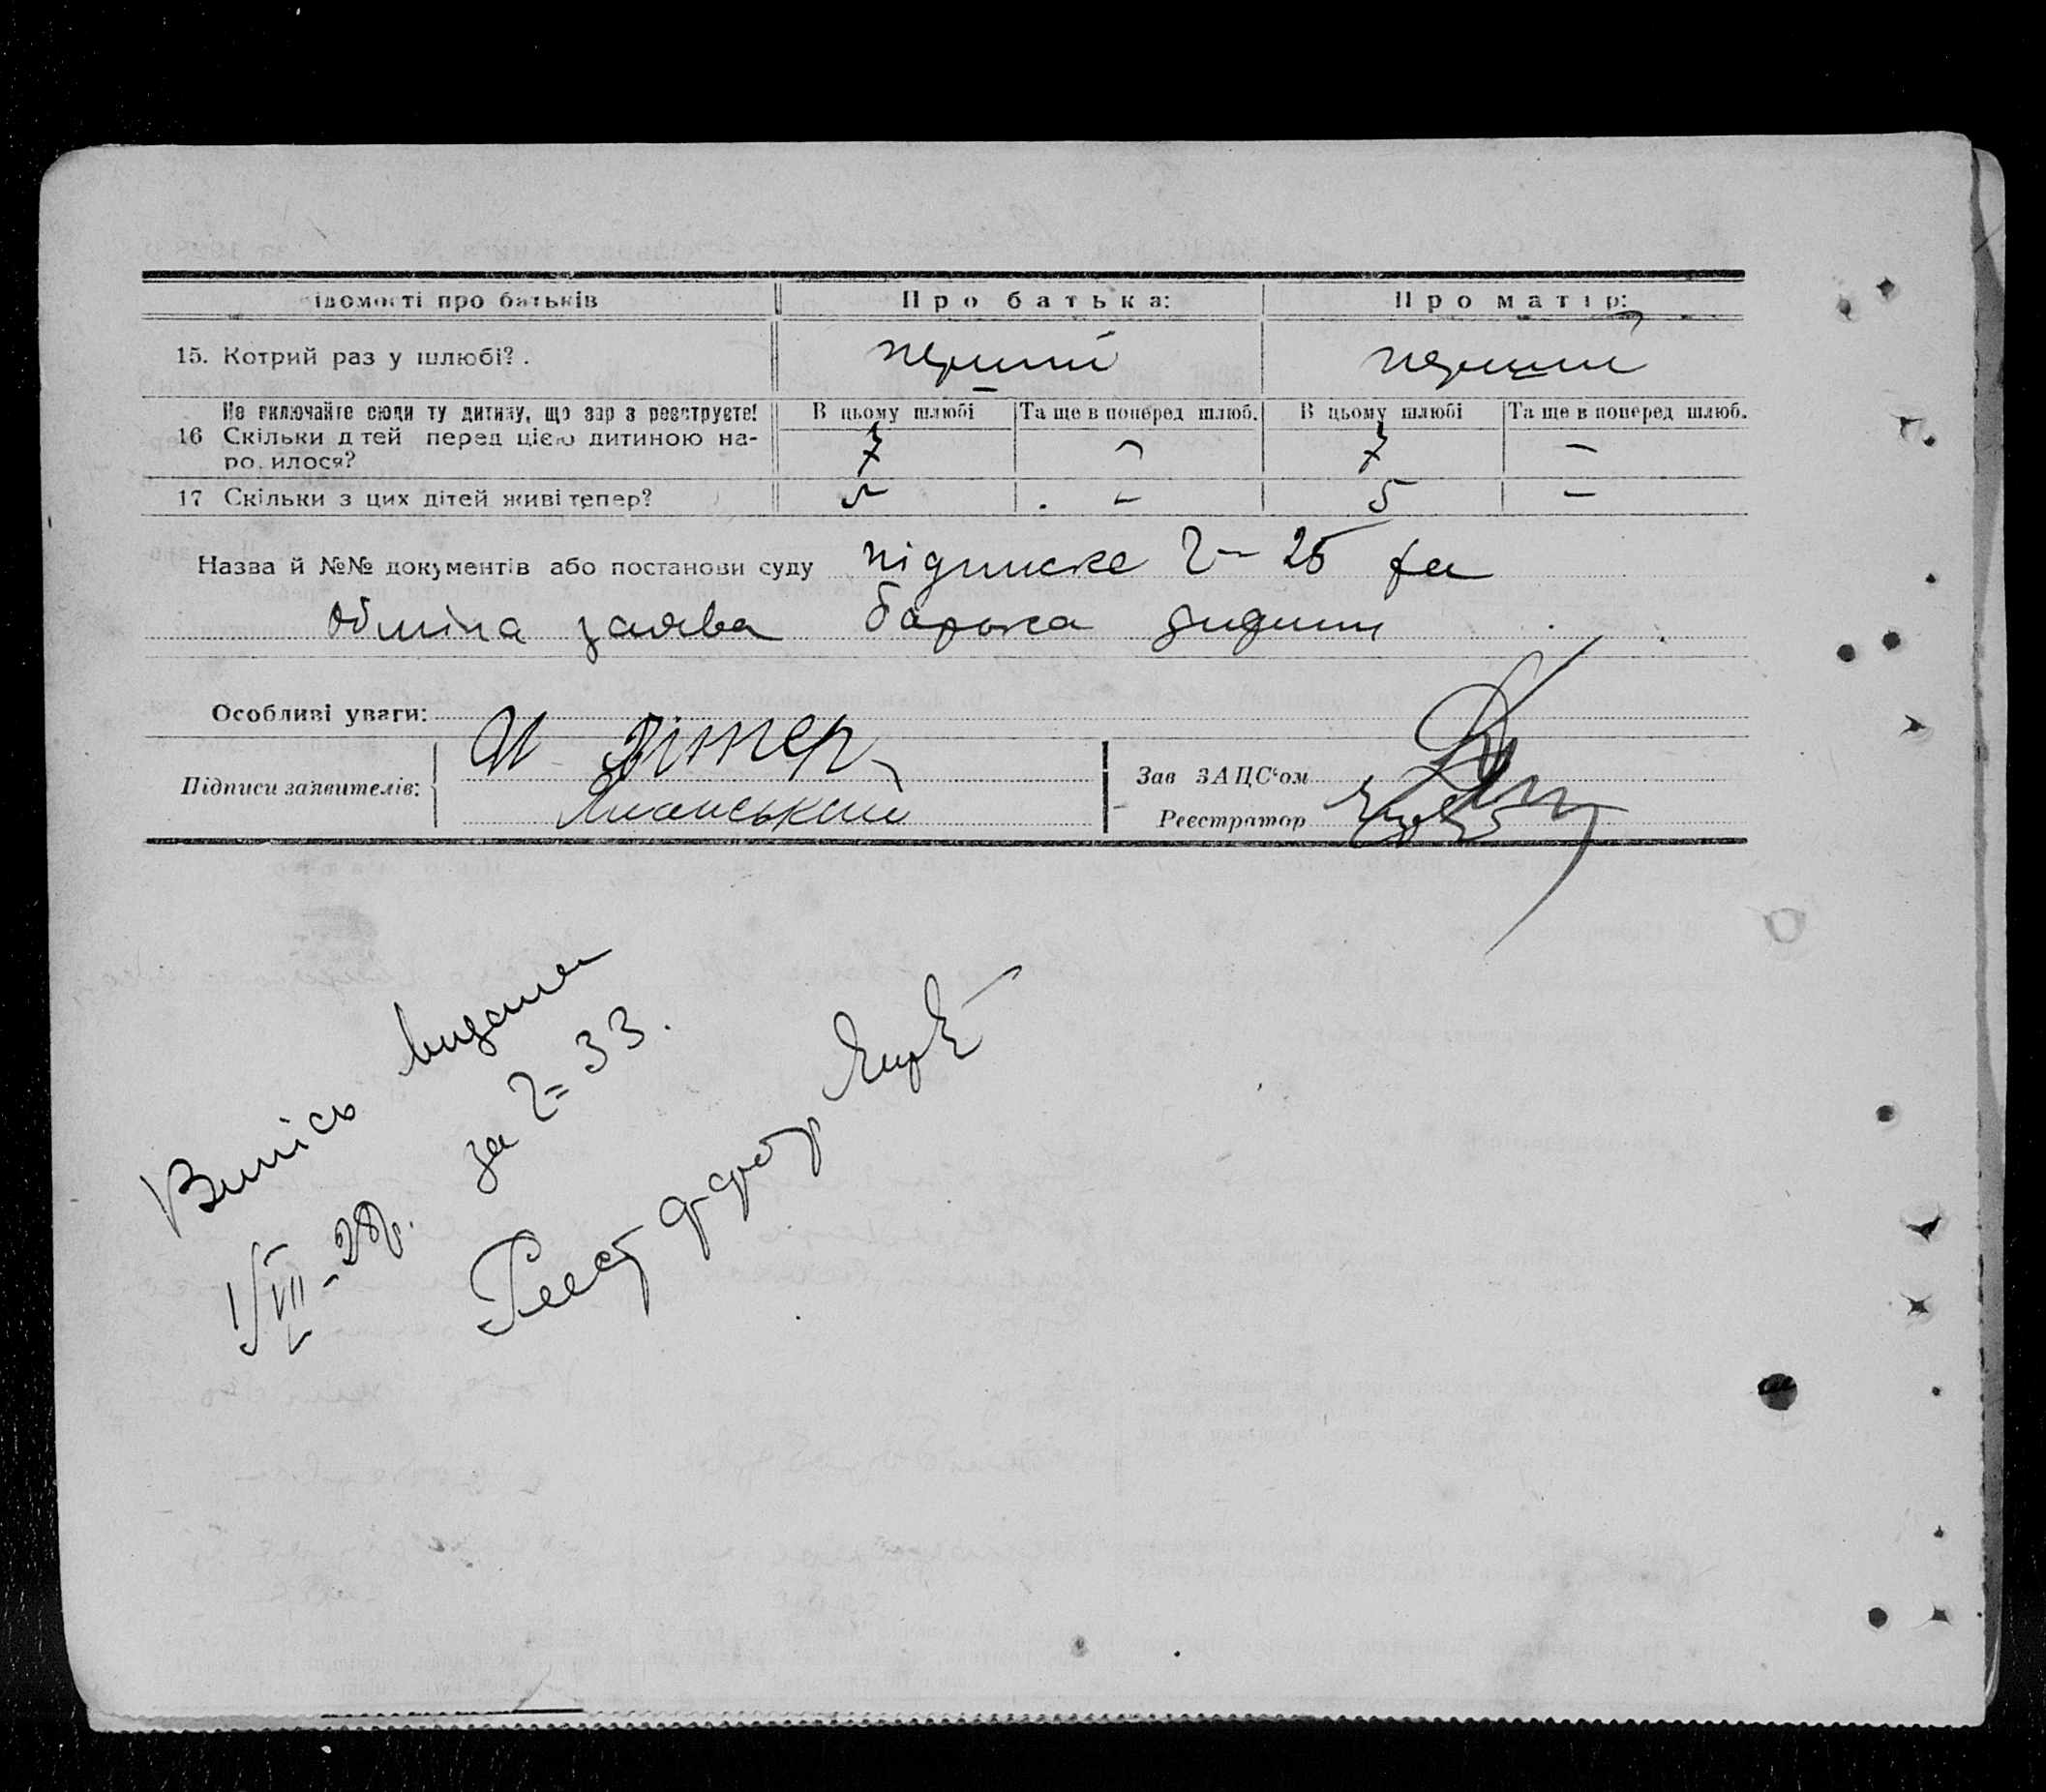 ідомості про батьків
Про батька:
Про матір:
15. Котрий раз у шлюбі?.
перший
перший
Не включайте сюди ту дитину, що зараз реєструєте!
В цьому шлюбі
Та ще в поперед шлюб.
В цьому шлюбі
Та ще в поперед шлюб.
16 Скільки дітей перед цією дитиною на-
родилося?
7
-
7
-
17 Скільки з цих дітей живі тепер?
5
-
5
-
Назва й №№ документів або постанови суду підписка 2-25
заява батька дитини
Особливі уваги:
Підписи заявителів: И Вітер
Зав ЗАЦС'ом
Реєстратор
Випісь видана
1/VIII-28р. за 2=33.
Реєстратор